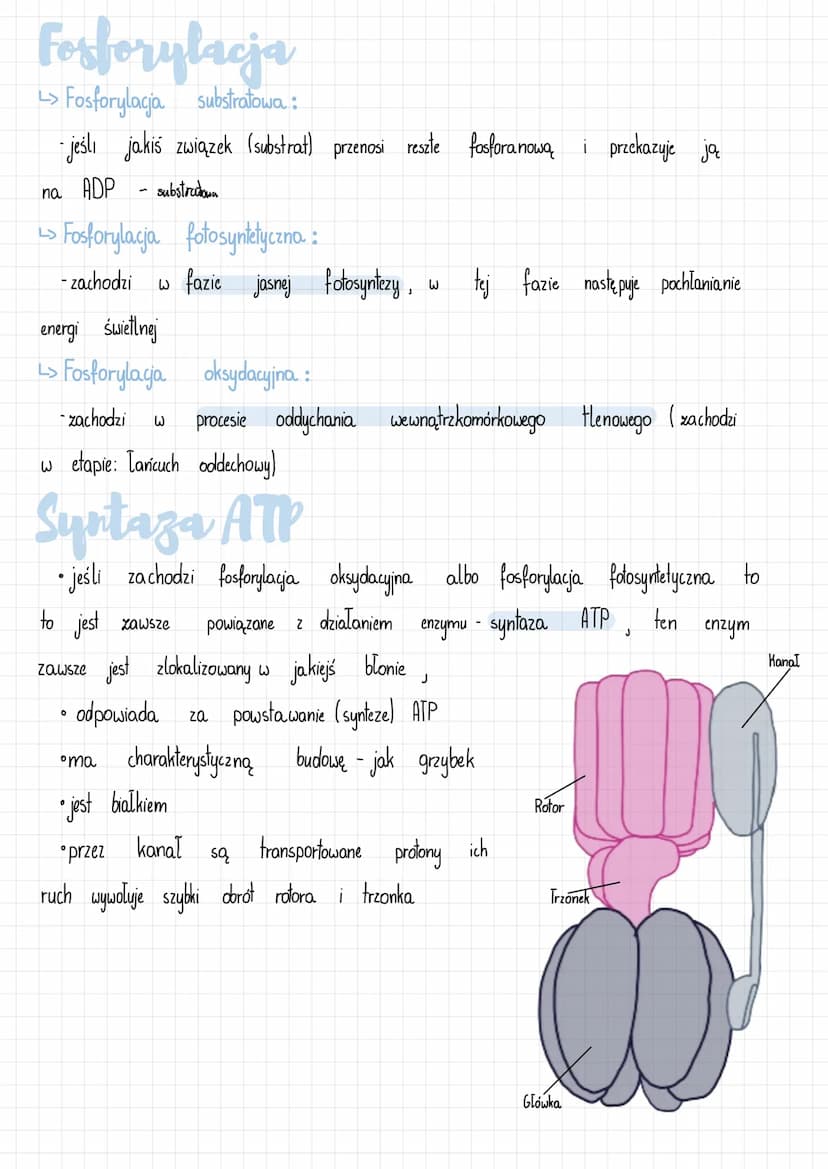 Fosforylacja
↳ Fosforylacja substratowa:
- jeśli jakiś związek (substrat) przenosi resztę fosforanową i przekazuje ją
na ADP - substratowa
↳ Fosforylacja fotosyntetyczna:
- zachodzi w fazie jasnej fotosyntezy, w tej fazie następuje pochłanianie
energi świetlnej
↳ Fosforylacja oksydacyjna:
- zachodzi w procesie oddychania wewnątrzkomórkowego tlenowego (zachodzi
w etapie: łańcuch oddechowy)
Syntaza ATP
• jeśli zachodzi fosforylacja oksydacyjna albo fosforylacja fotosyntetyczna to
to jest zawsze powiązane z działaniem enzymu - syntaza ATP, ten enzym
zawsze jest zlokalizowany w jakiejś błonie,
Kanał
• odpowiada za powstawanie (syntezę) ATP
• ma charakterystyczną budowę - jak grzybek
• jest białkiem
Rotor
• przez kanał są transportowane protony ich
ruch wywołuje szybki obrót rotora i trzonka
Trzonek
Główka